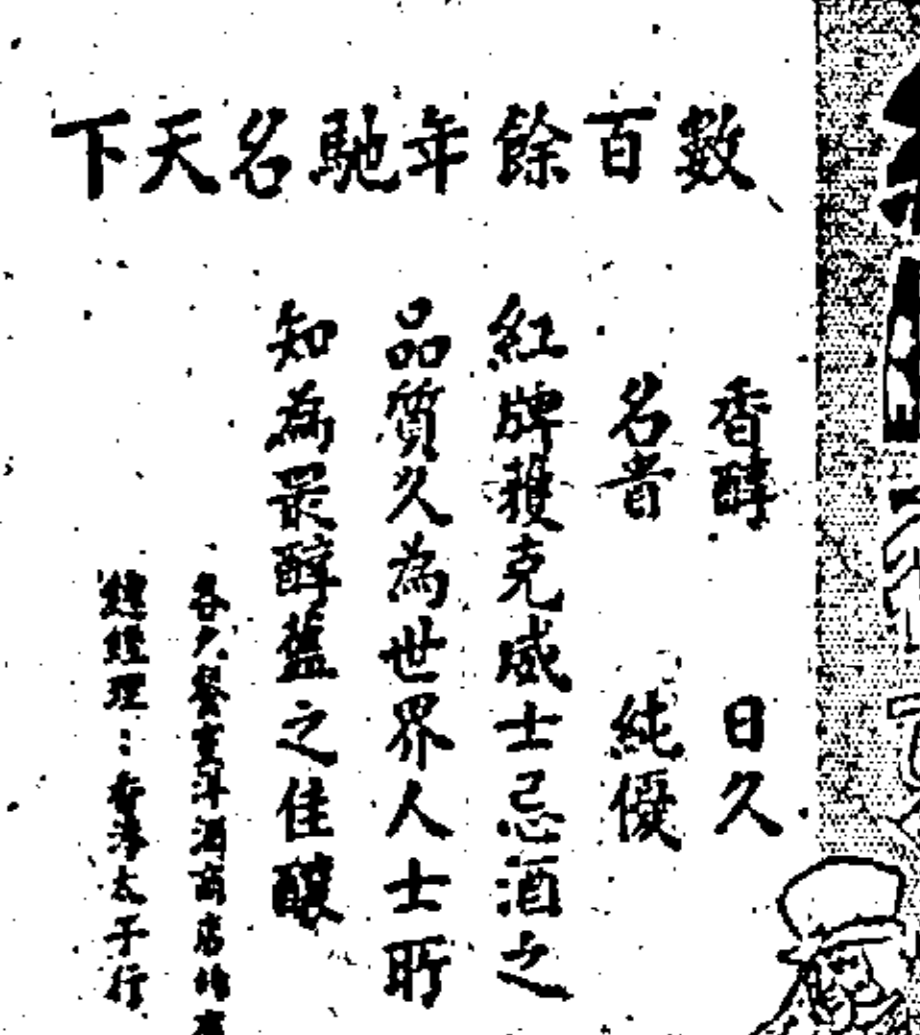 數百餘年馳名天下
香醇 日久
名貴 純優
紅牌獲克威士忌酒之
品質久為世界人士所
知為最醇舊之佳釀
各大餐室洋酒商店均
總經理：香港太子行